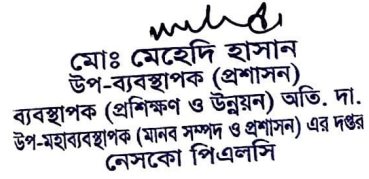 মোঃ মেহেদি হাসান
উপ-ব্যবস্থাপক (প্রশাসন)
ব্যবস্থাপক (প্রশিক্ষণ ও উন্নয়ন) অতি. দা.
উপ-মহাব্যবস্থাপক (মানব সম্পদ ও প্রশাসন) এর দপ্তর
নেসকো পিএলসি